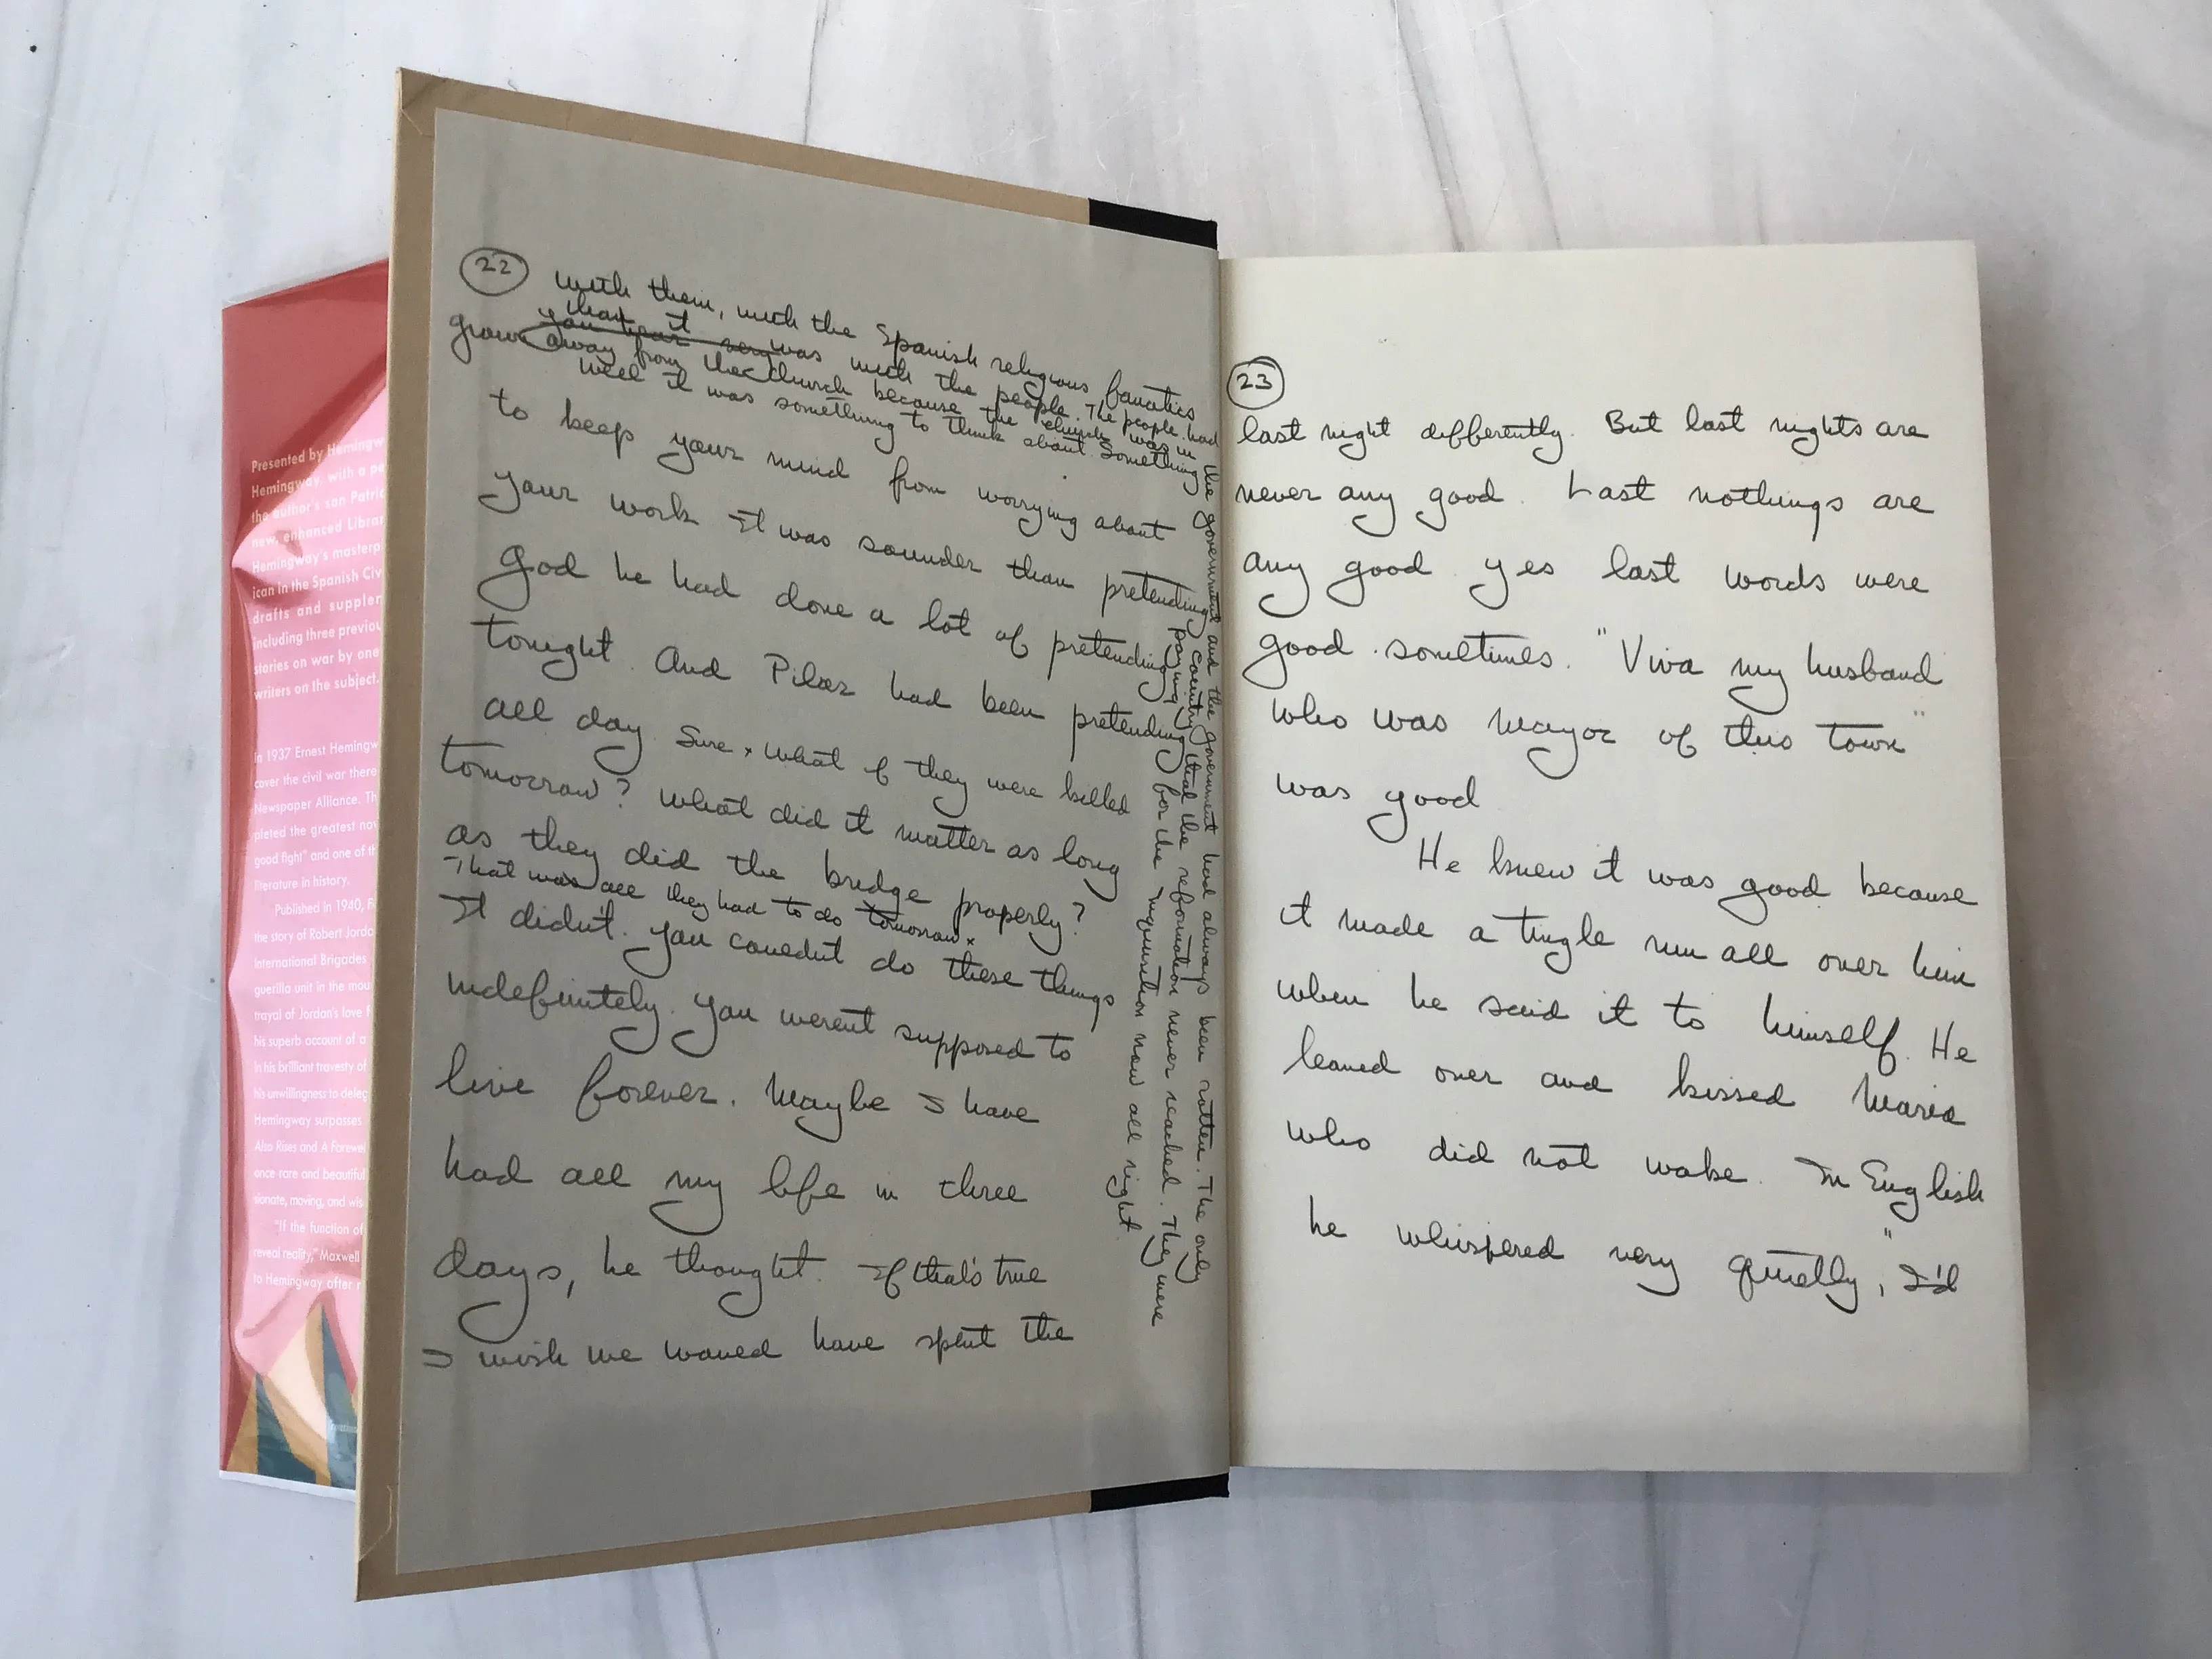 Presented by Hemingw
Hemingway, with a pe
the author's son Patric
new, enhanced Librar
Hemingway's masterp
ican in the Spanish Civ
drafts and suppler
including three previou
stories on war by one
writers on the subject.
In 1937 Ernest Hemingw
cover the civil war there
Newspaper Alliance. Th
pleted the greatest nov
good fight" and one of th
literature in history.
Published in 1940, F
the story of Robert Jorda
International Brigades
guerilla unit in the mou
trayal of Jordan's love f
his superb account of a
in his brilliant travesty of
his unwillingness to deleg
Hemingway surpasses
Also Rises and A Farewel
once rare and beautiful
sionate, moving, and wis
"If the function of
reveal reality," Maxwell
to Hemingway after r
22 with them, with the Spanish religious fanatics
than it was with the people. The people had
grown away from the church because the church was in
the government and the government had always been rotten. The only
country that the reformation never reached. They were
paying for the inquisition now all right
Well it was something to think about. Something
to keep your mind from worrying about
your work It was sounder than pretending
God he had done a lot of pretending
tonight. And Pilar had been pretending
all day. Sure x What if they were killed
tomorrow? What did it matter as long
as they did the bridge properly?
That was all they had to do tomorrow x
It didn't. You couldn't do these things
indefinitely. You weren't supposed to
live forever. Maybe I have
had all my life in three
days, he thought. If that's true
I wish we would have spent the
23
last night differently. But last nights are
never any good. Last nothings are
any good yes last words were
good sometimes. "Viva my husband
who was mayor of this town"
was good
He knew it was good because
it made a tingle run all over him
when he said it to himself. He
leaned over and kissed Maria
who did not wake. In English
he whispered very quietly, "I'd